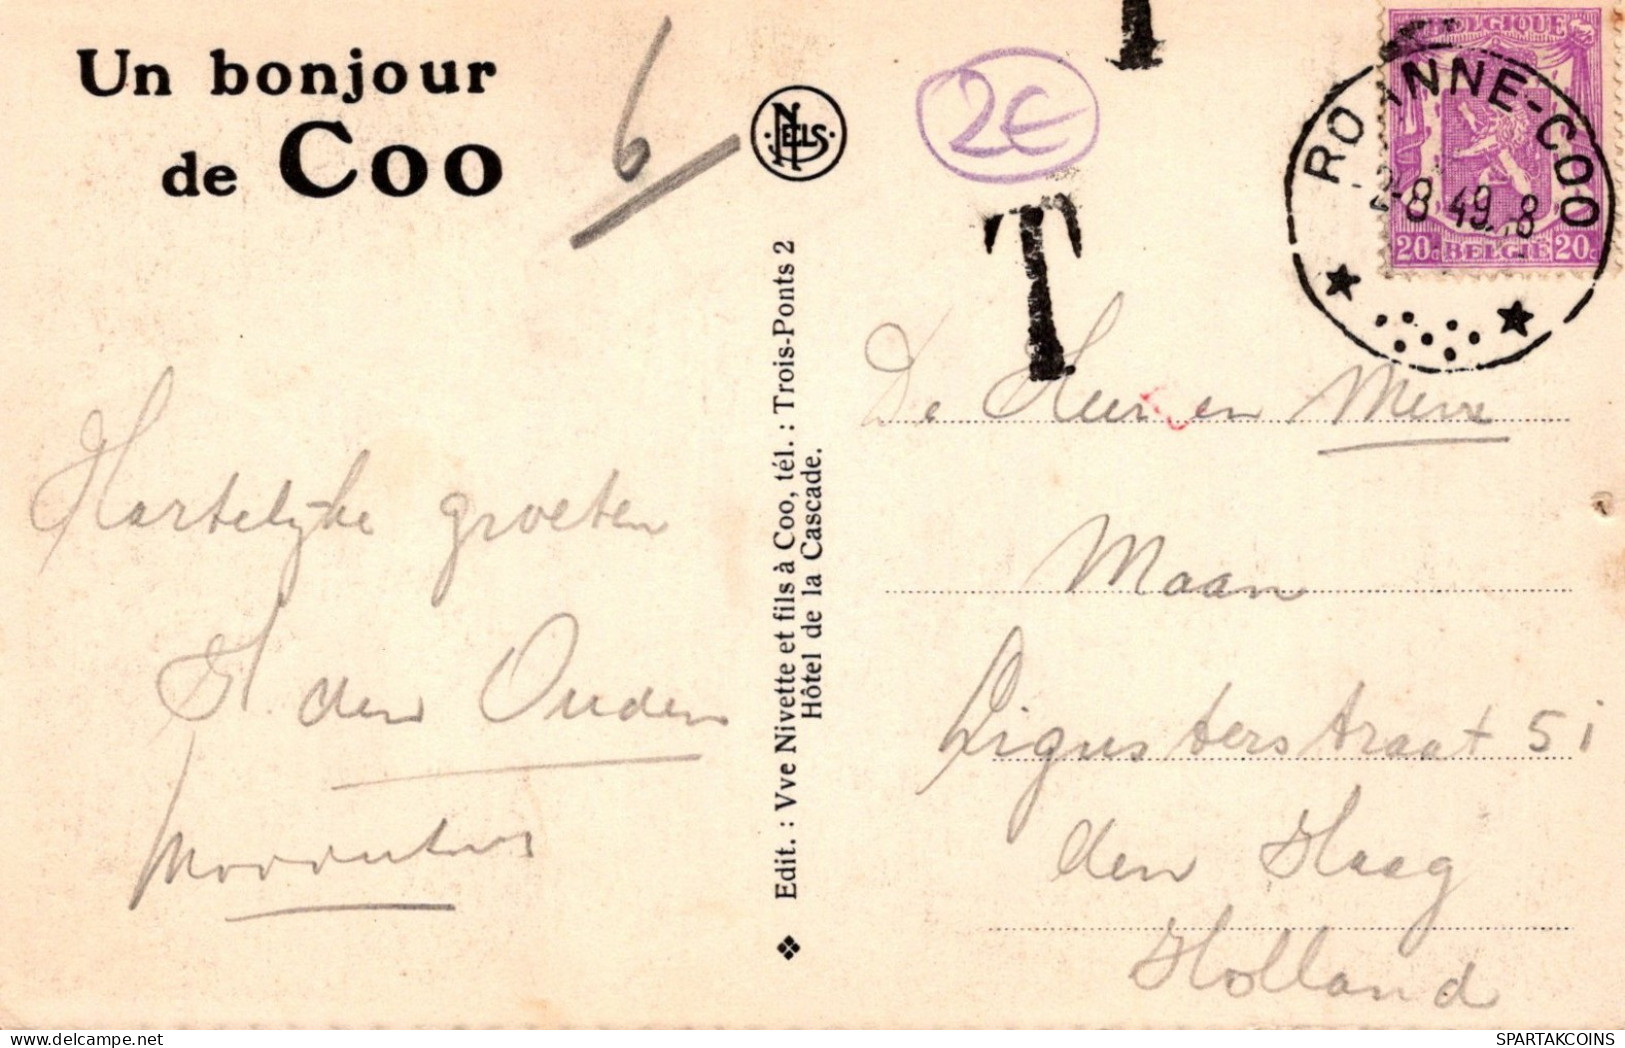 Un bonjour
de Coo
6
NELS
2€
T
BELGIQUE
ROANNE-COO
2-8.49. 8
20c BELGIE 20c
Edit. : Vve Nivette et fils à Coo, tél. : Trois-Ponts 2
Hôtel de la Cascade.
Hartelijke groeten
den Ouden
De Heer en Mevr
Maan
Ligusterstraat 51
den Haag
Holland
SPARTAKCOINS